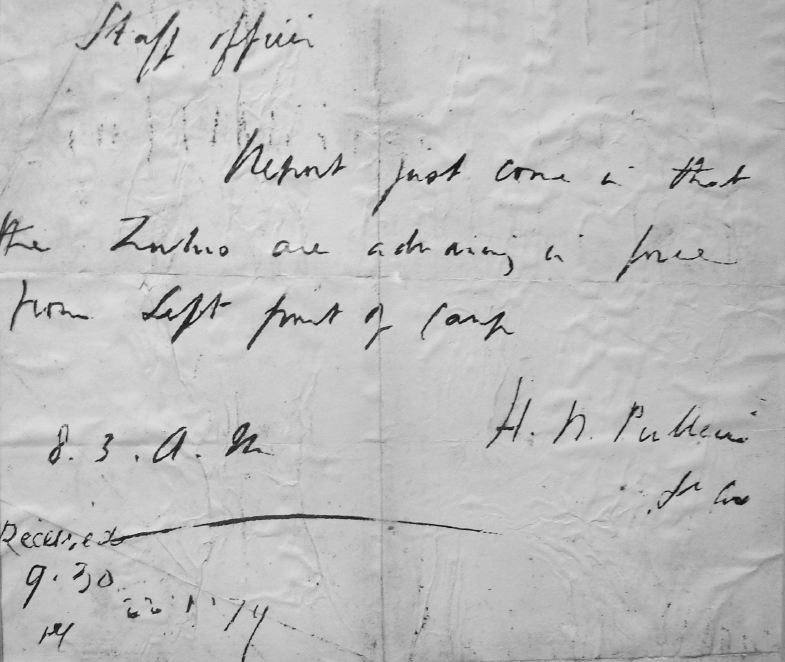 Staff officer
Report just come in that
the Zulus are advancing in force
from Left front of Camp
8. 3. A. M
H. B. Pulleine
Lt Col
Received
9.30
22 1 79